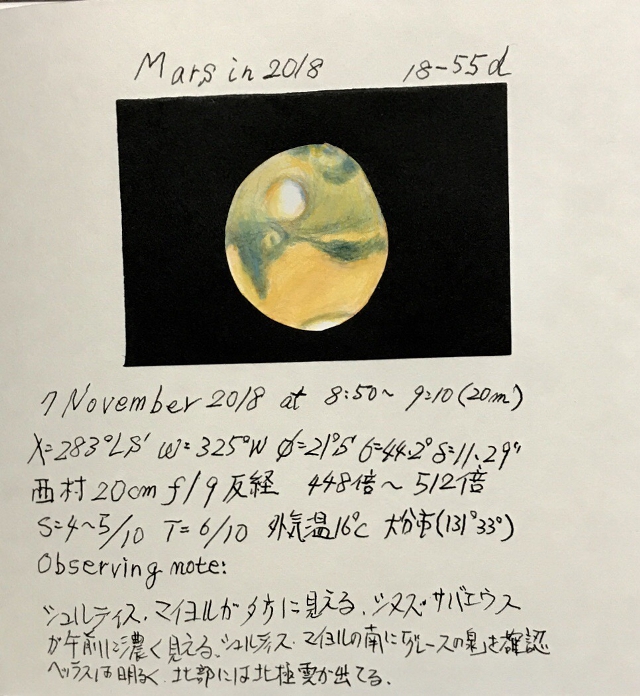 Mars in 2018 18-55d
7 November 2018 at 8:50~ 9:10 (20m)
λ=283°LS ω=325°W φ=21°S ι=44.2° δ=11.29"
西村 20cm f/9 反経 448倍~512倍
S=4~5/10 T=6/10 外気温16°C 大分市(131°33°)
Observing note:
シュルティス・マイヨルが夕方に見える、シヌス・サバエウス
が午前に濃く見える、シュルティス・マイヨルの南に「グレースの泉」を確認
ヘラスは明るく、北部には北極雲が出てる、